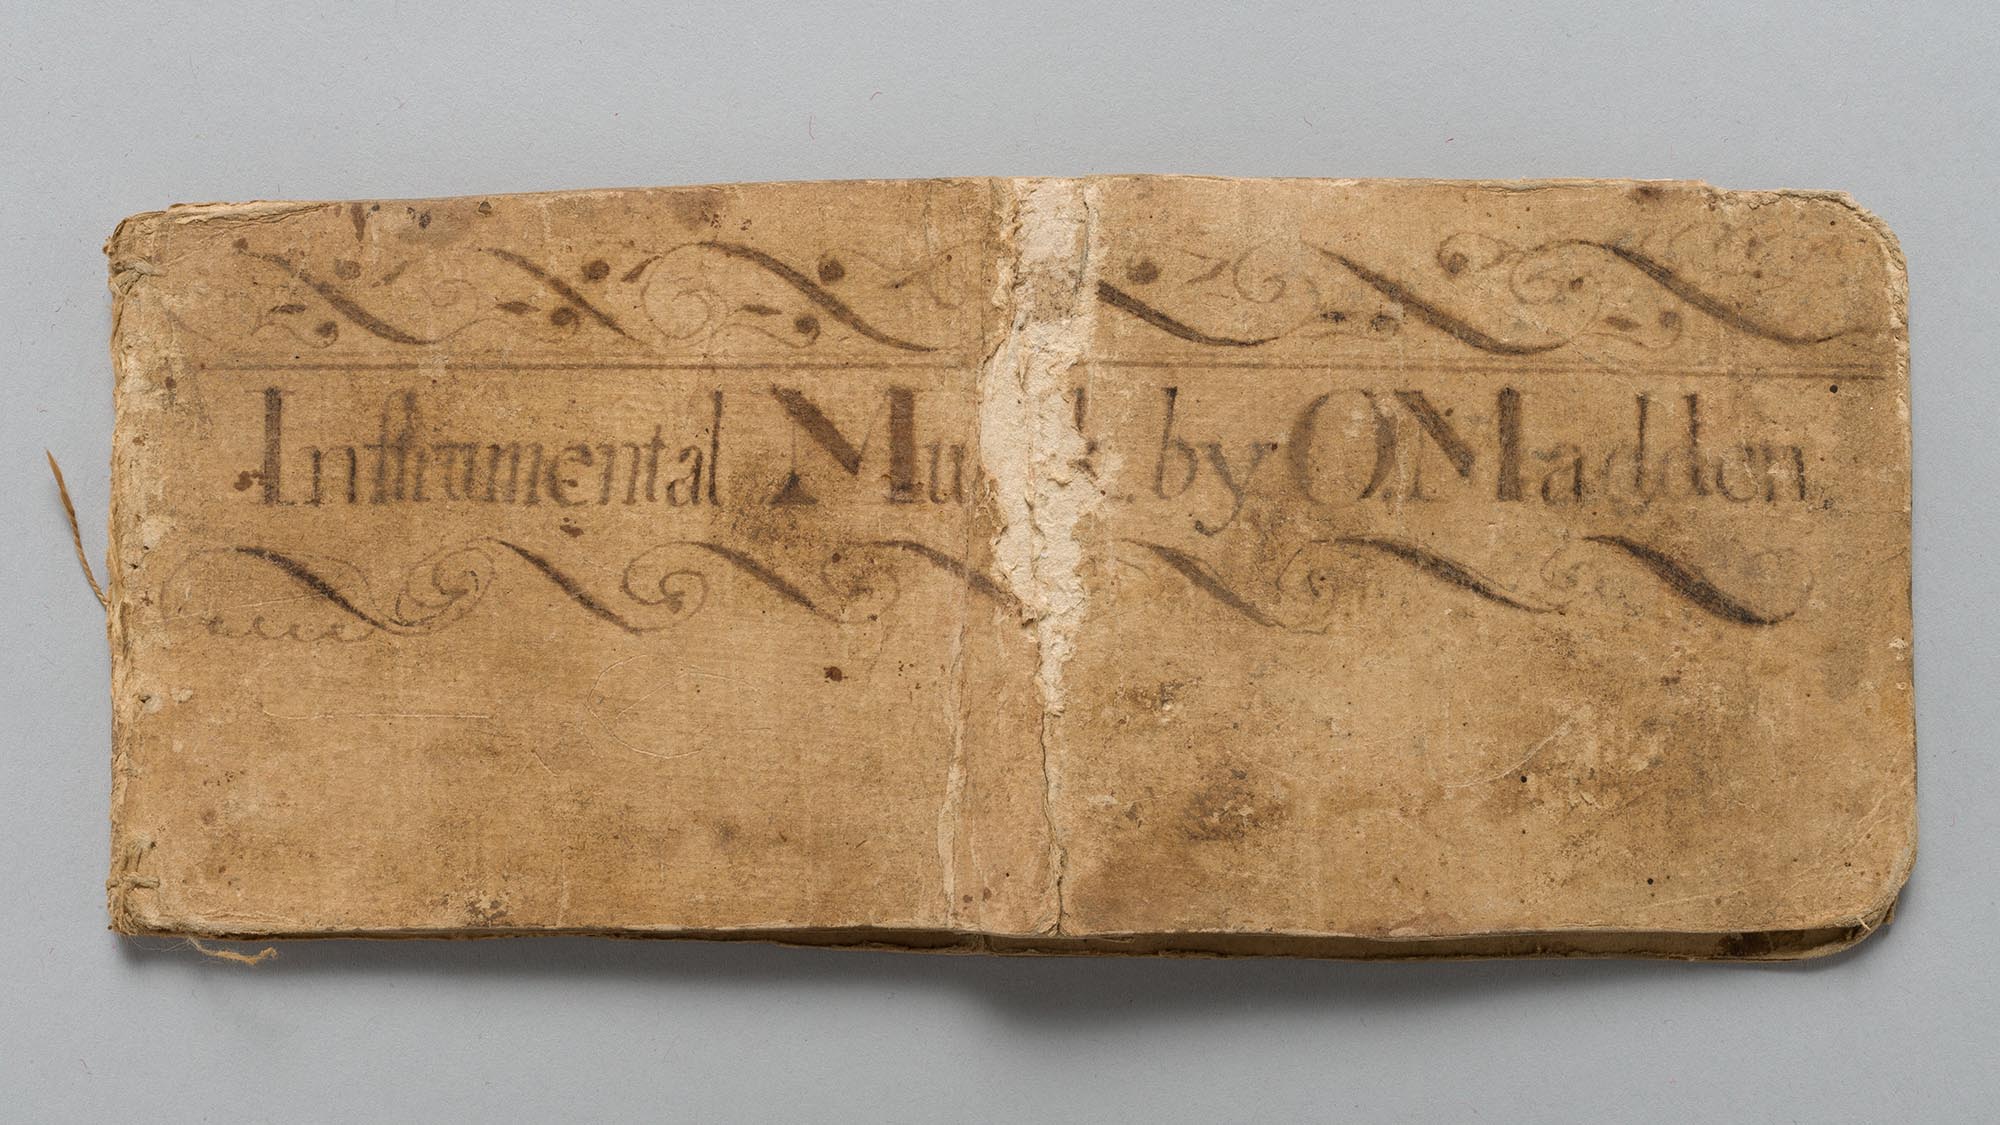 Inſtrumental by O. Madden